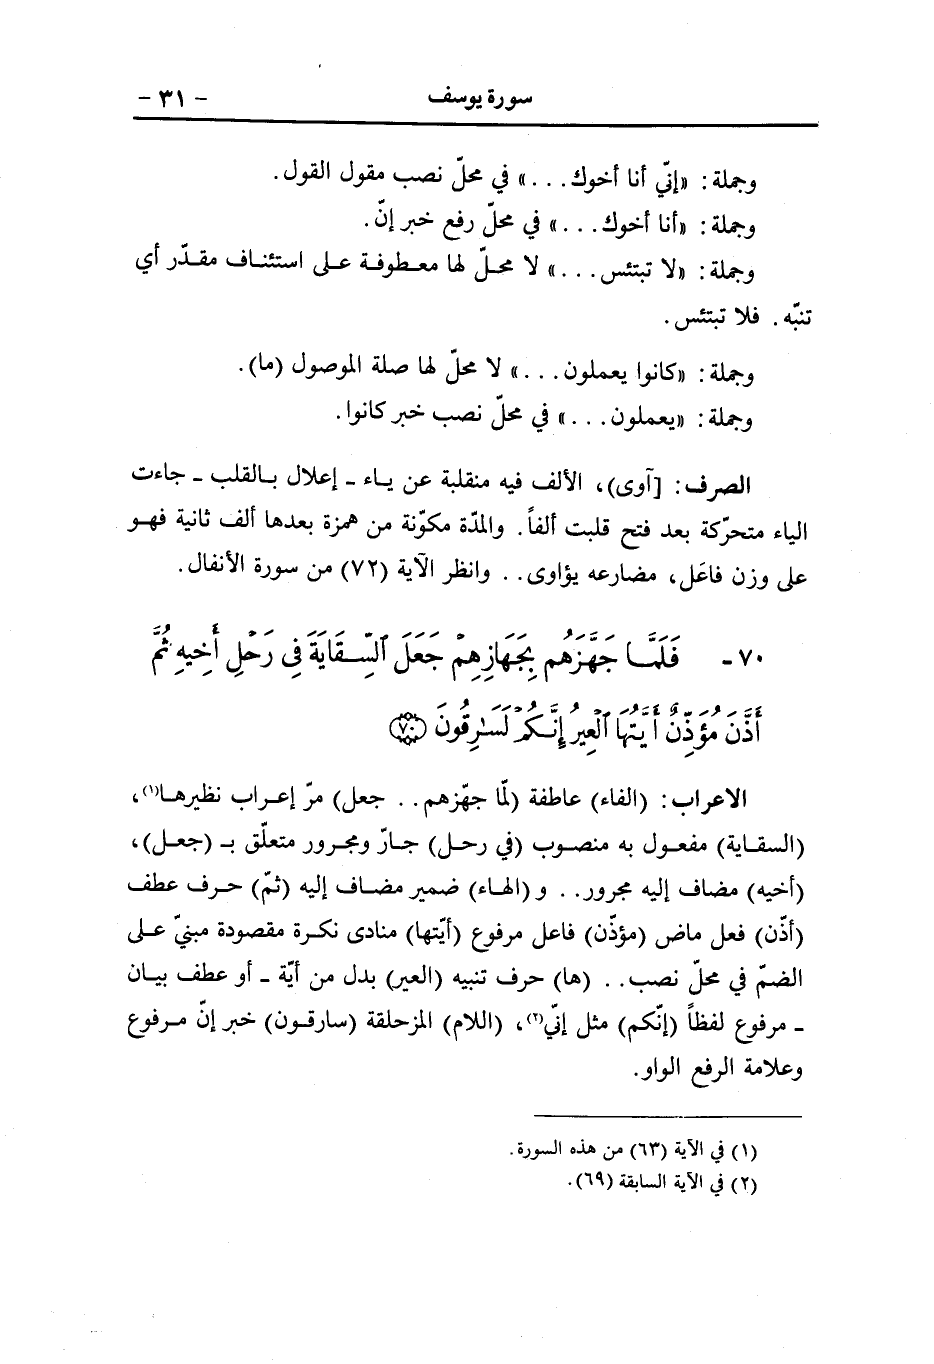 سورة يوسف - ٣١ -
وجملة: «إنّي أنا أخوك. . .» في محلّ نصب مقول القول.
وجملة: «أنا أخوك. . .» في محلّ رفع خبر إنّ.
وجملة: «لا تبتئس. . .» لا محلّ لها معطوفة على استئناف مقدّر أي
تنبّه. فلا تبتئس.
وجملة: «كانوا يعملون. . .» لا محلّ لها صلة الموصول (ما).
وجملة: «يعملون. . .» في محلّ نصب خبر كانوا.
الصرف: [آوى)، الألف فيه منقلبة عن ياء ـ إعلال بالقلب ـ جاءت
الياء متحرّكة بعد فتح قلبت ألفاً. والمدّة مكوّنة من همزة بعدها ألف ثانية فهو
على وزن فاعَل، مضارعه يؤاوى. . وانظر الآية (٧٢) من سورة الأنفال.
٧٠- فَلَمَّا جَهَّزَهُم بِجَهَازِهِمْ جَعَلَ ٱلسِّقَايَةَ فِى رَحْلِ أَخِيهِ ثُمَّ
أَذَّنَ مُؤَذِّنٌ أَيَّتُهَا ٱلْعِيرُ إِنَّكُمْ لَسَٰرِقُونَ ﴿٧٠﴾
الاعراب: (الفاء) عاطفة (لمّا جهّزهم. . جعل) مرّ إعراب نظيرها(١)،
(السقاية) مفعول به منصوب (في رحل) جارّ ومجرور متعلّق بـ (جعل)،
(أخيه) مضاف إليه مجرور. . و(الهاء) ضمير مضاف إليه (ثمّ) حرف عطف
(أذّن) فعل ماض (مؤذّن) فاعل مرفوع (أيّتها) منادى نكرة مقصودة مبنيّ على
الضمّ في محلّ نصب. . (ها) حرف تنبيه (العير) بدل من أيّة ـ أو عطف بيان
ـ مرفوع لفظاً (إنّكم) مثل إنّي(٢)، (اللام) المزحلقة (سارقون) خبر إنّ مرفوع
وعلامة الرفع الواو.
(١) في الآية (٦٣) من هذه السورة.
(٢) في الآية السابقة (٦٩).